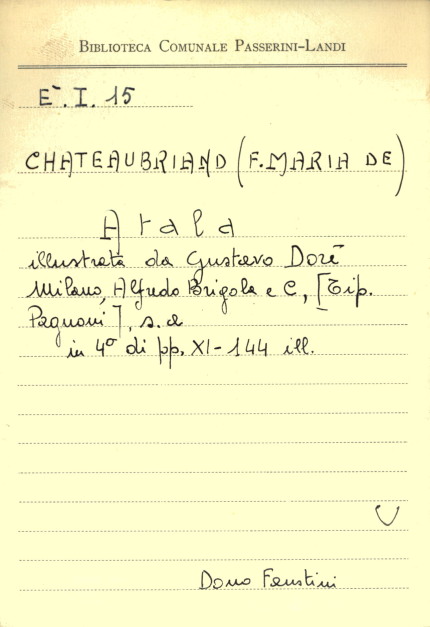 BIBLIOTECA COMUNALE PASSERINI-LANDI
E. I. 15
CHATEAUBRIAND (F. MARIA DE)
Atala
illustrata da Gustavo Doré
Milano, Alfredo Brigola e C, [Tip.
Pagnoni], s. d
in 4º di pp. XI-144 ill.
U
Dono Faustini